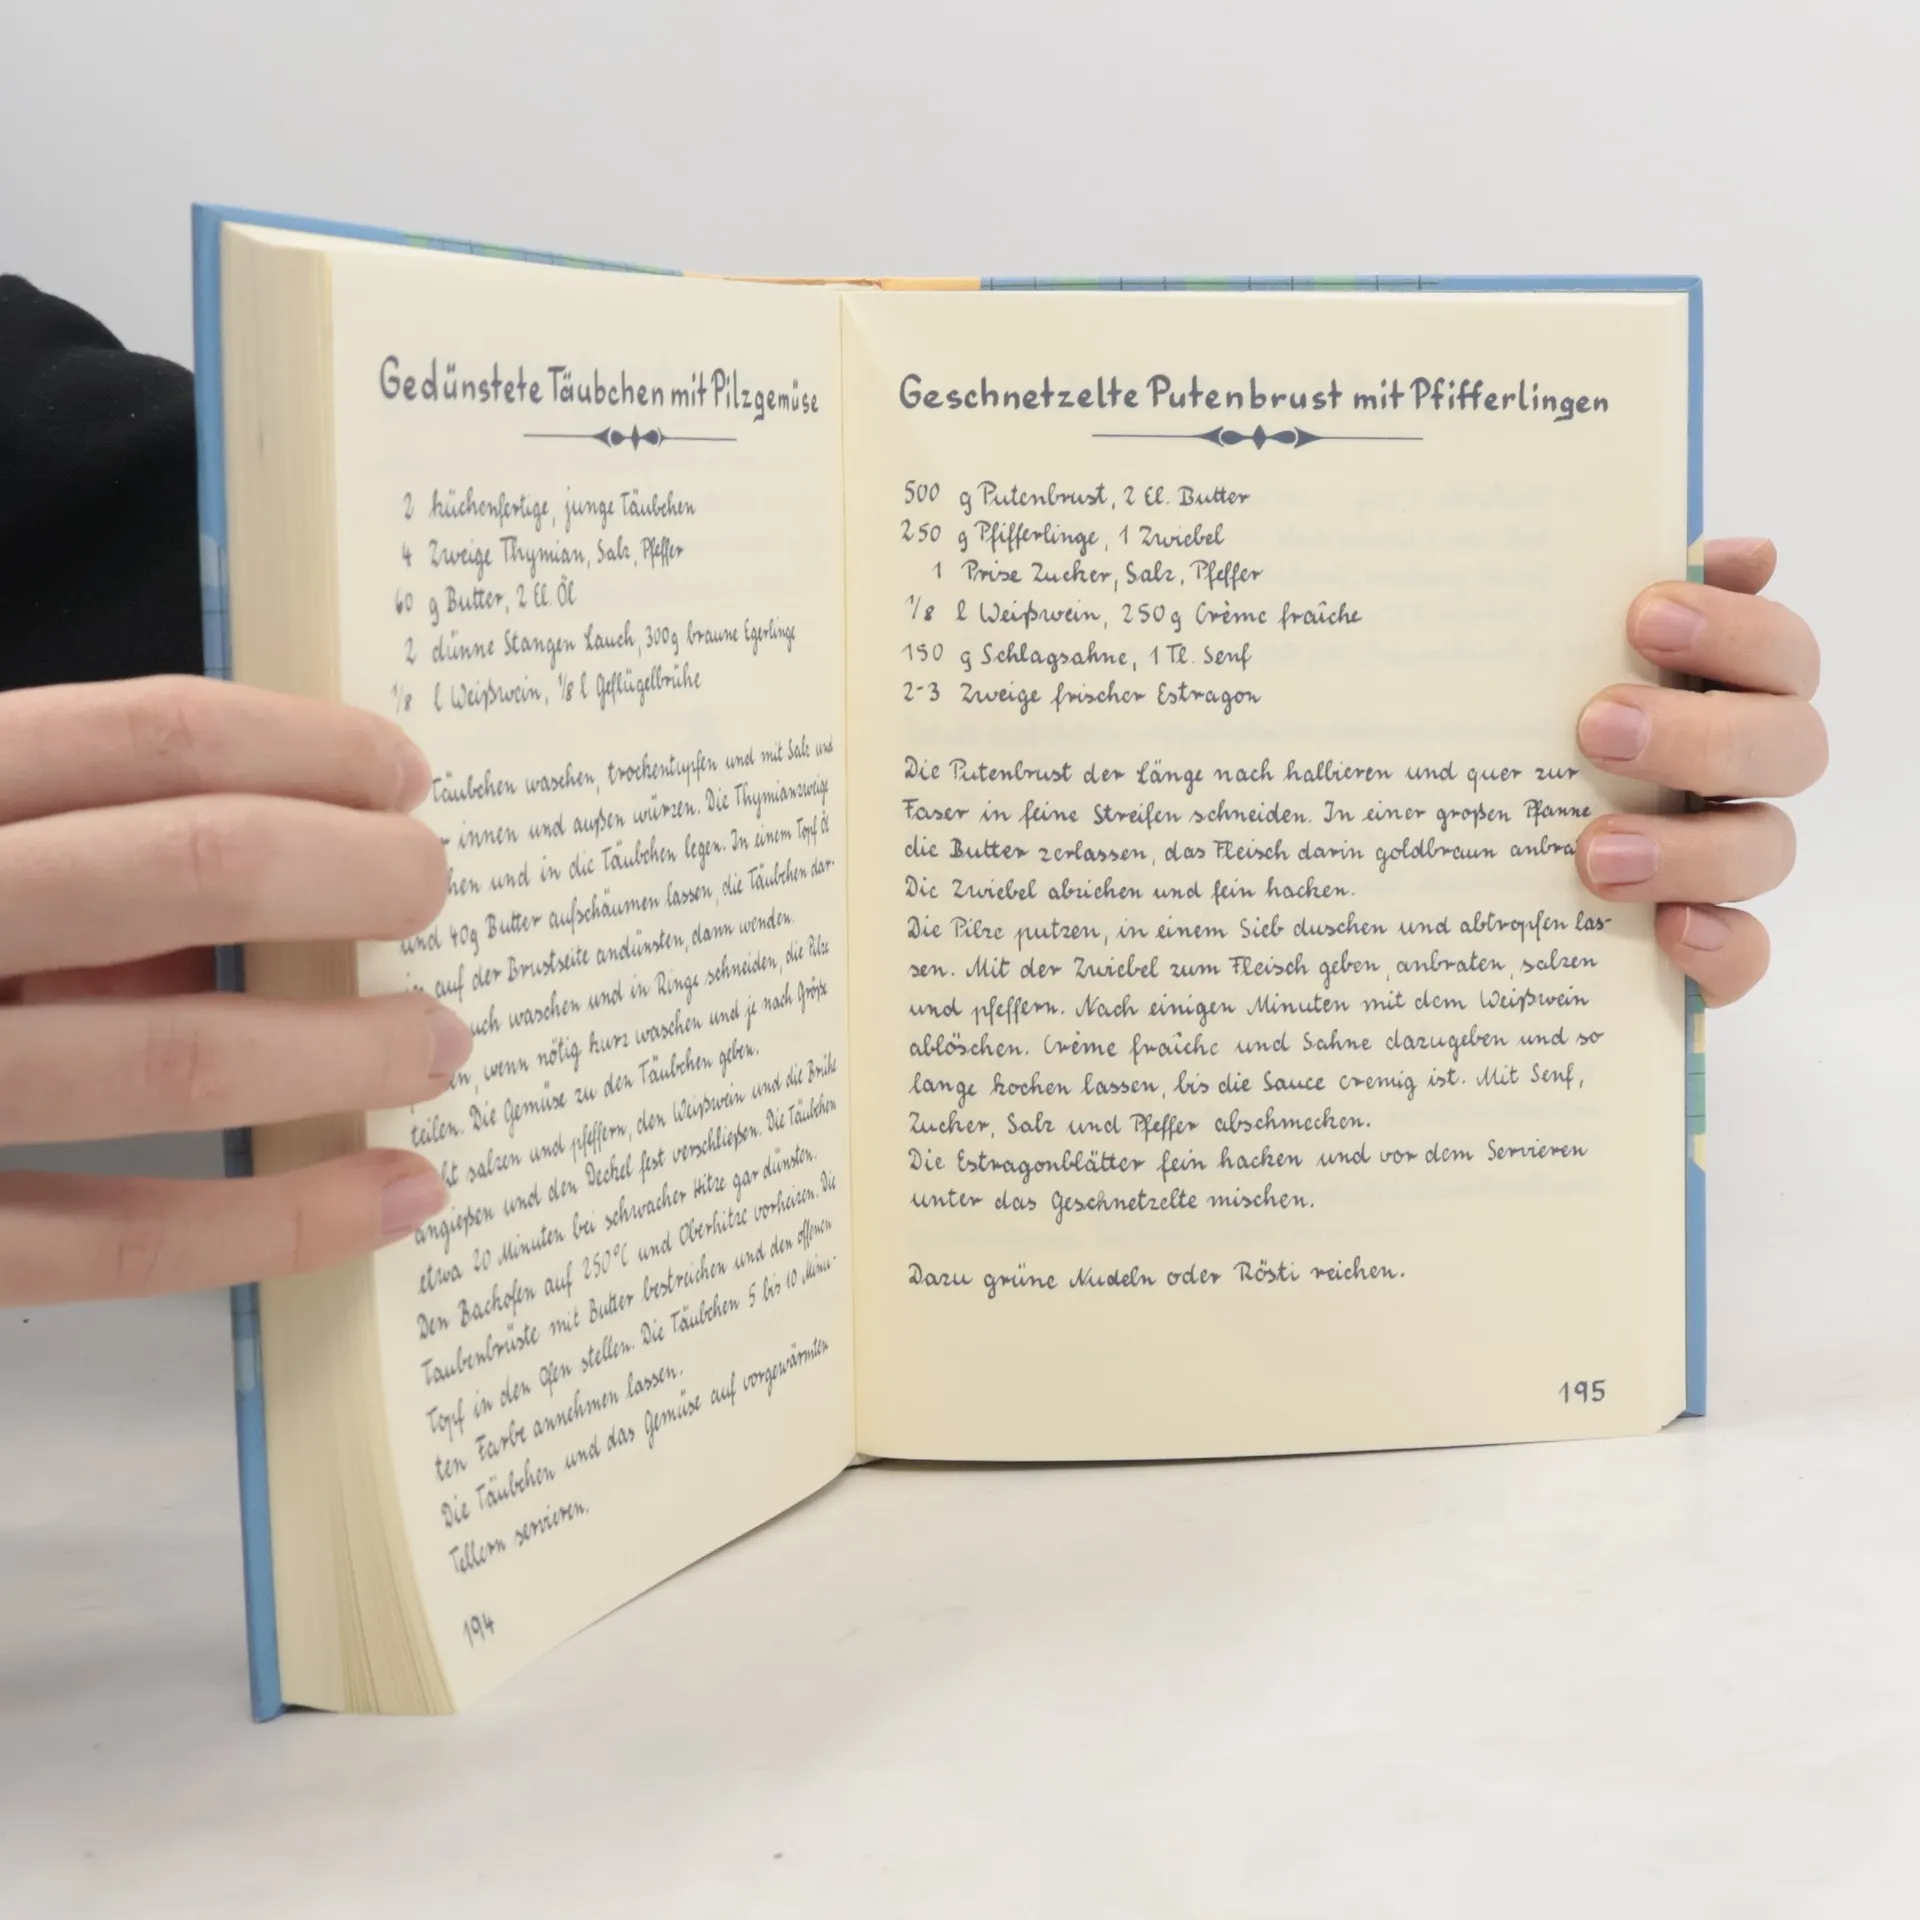 Gedünstete Täubchen mit Pilzgemüse
2 küchenfertige, junge Täubchen
4 Zweige Thymian, Salz, Pfeffer
60 g Butter, 2 El. Öl
2 dünne Stangen Lauch, 300g braune Egerlinge
1/8 l Weißwein, 1/8 l Geflügelbrühe
Täubchen waschen, trockentupfen und mit Salz und
innen und außen würzen. Die Thymianzweige
und in die Täubchen legen. In einem Topf Öl
und 40g Butter aufschäumen lassen, die Täubchen dar-
auf der Brustseite andünsten, dann wenden.
waschen und in Ringe schneiden, die Pilze
wenn nötig kurz waschen und je nach Größe
teilen. Die Gemüse zu den Täubchen geben.
salzen und pfeffern, den Weißwein und die Brühe
angießen und den Deckel fest verschließen. Die Täubchen
etwa 20 Minuten bei schwacher Hitze gar dünsten.
Den Backofen auf 250°C und Oberhitze vorheizen. Die
Taubenbrüste mit Butter bestreichen und den offenen
Topf in den Ofen stellen. Die Täubchen 5 bis 10 Minu-
ten Farbe annehmen lassen.
Die Täubchen und das Gemüse auf vorgewärmten
Tellern servieren.
194
Geschnetzelte Putenbrust mit Pfifferlingen
500 g Putenbrust, 2 El. Butter
250 g Pfifferlinge, 1 Zwiebel
1 Prise Zucker, Salz, Pfeffer
1/8 l Weißwein, 250g Crème fraîche
150 g Schlagsahne, 1 Tl. Senf
2-3 Zweige frischer Estragon
Die Putenbrust der Länge nach halbieren und quer zur
Faser in feine Streifen schneiden. In einer großen Pfanne
die Butter zerlassen, das Fleisch darin goldbraun anbra
Die Zwiebel abziehen und fein hacken.
Die Pilze putzen, in einem Sieb duschen und abtropfen las-
sen. Mit der Zwiebel zum Fleisch geben, anbraten, salzen
und pfeffern. Nach einigen Minuten mit dem Weißwein
ablöschen. Crème fraîche und Sahne dazugeben und so
lange kochen lassen, bis die Sauce cremig ist. Mit Senf,
Zucker, Salz und Pfeffer abschmecken.
Die Estragonblätter fein hacken und vor dem Servieren
unter das Geschnetzelte mischen.
Dazu grüne Nudeln oder Rösti reichen.
195